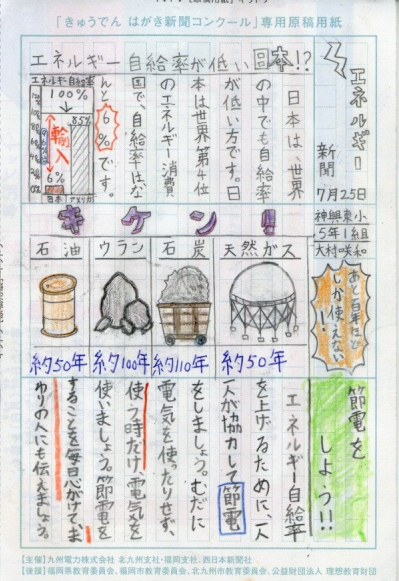 「きゅうでん はがき新聞コンクール」専用原稿用紙
エネルギー
新聞
7月25日
神興東小
5年1組
大村咲和
エネルギー自給率が低い日本!?
日本は、世界
の中でも自給率
が低い方です。日
本は世界第4位
のエネルギー消費
国で、自給率はな
んと6%です。
エネルギー自給率
100%
85%
輸入
6%
日本
アメリカ
キケン!!
あと百年ほど
しか使えない
!
天然ガス
約50年
石炭
約110年
ウラン
約100年
石油
約50年
節電を
しよう!!
エネルギー自給率
を上げるために、一人
一人が協力して節電
をしましょう。むだに
電気を使ったりせず、
使う時だけ、電気を
使いましょう。節電を
することを毎日心がけて、ま
わりの人にも伝えましょう。
【主催】九州電力株式会社 北九州支社・福岡支社、西日本新聞社
【後援】福岡県教育委員会、福岡市教育委員会、北九州市教育委員会、公益財団法人 理想教育財団